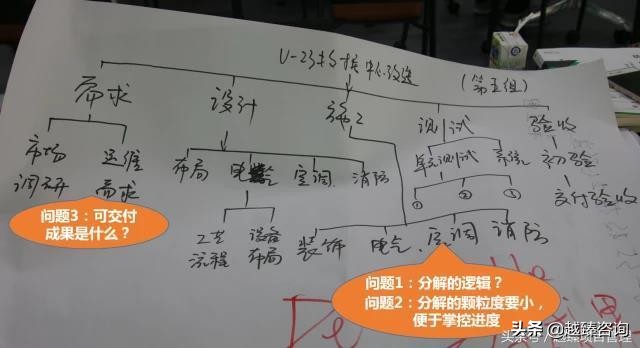 (第五组)
需求
设计
施工
测试
验收
市场
调研
运维
需求
布局
电
空调
消防
单元测试
系统
初验
交付验收
①
②
③
工艺
流程
设备
布局
装饰
电气
空调
消防
问题3：可交付
成果是什么？
问题1：分解的逻辑？
问题2：分解的颗粒度要小，
便于掌控进度
De
头条@越臻咨询
头条号/越臻项目管理